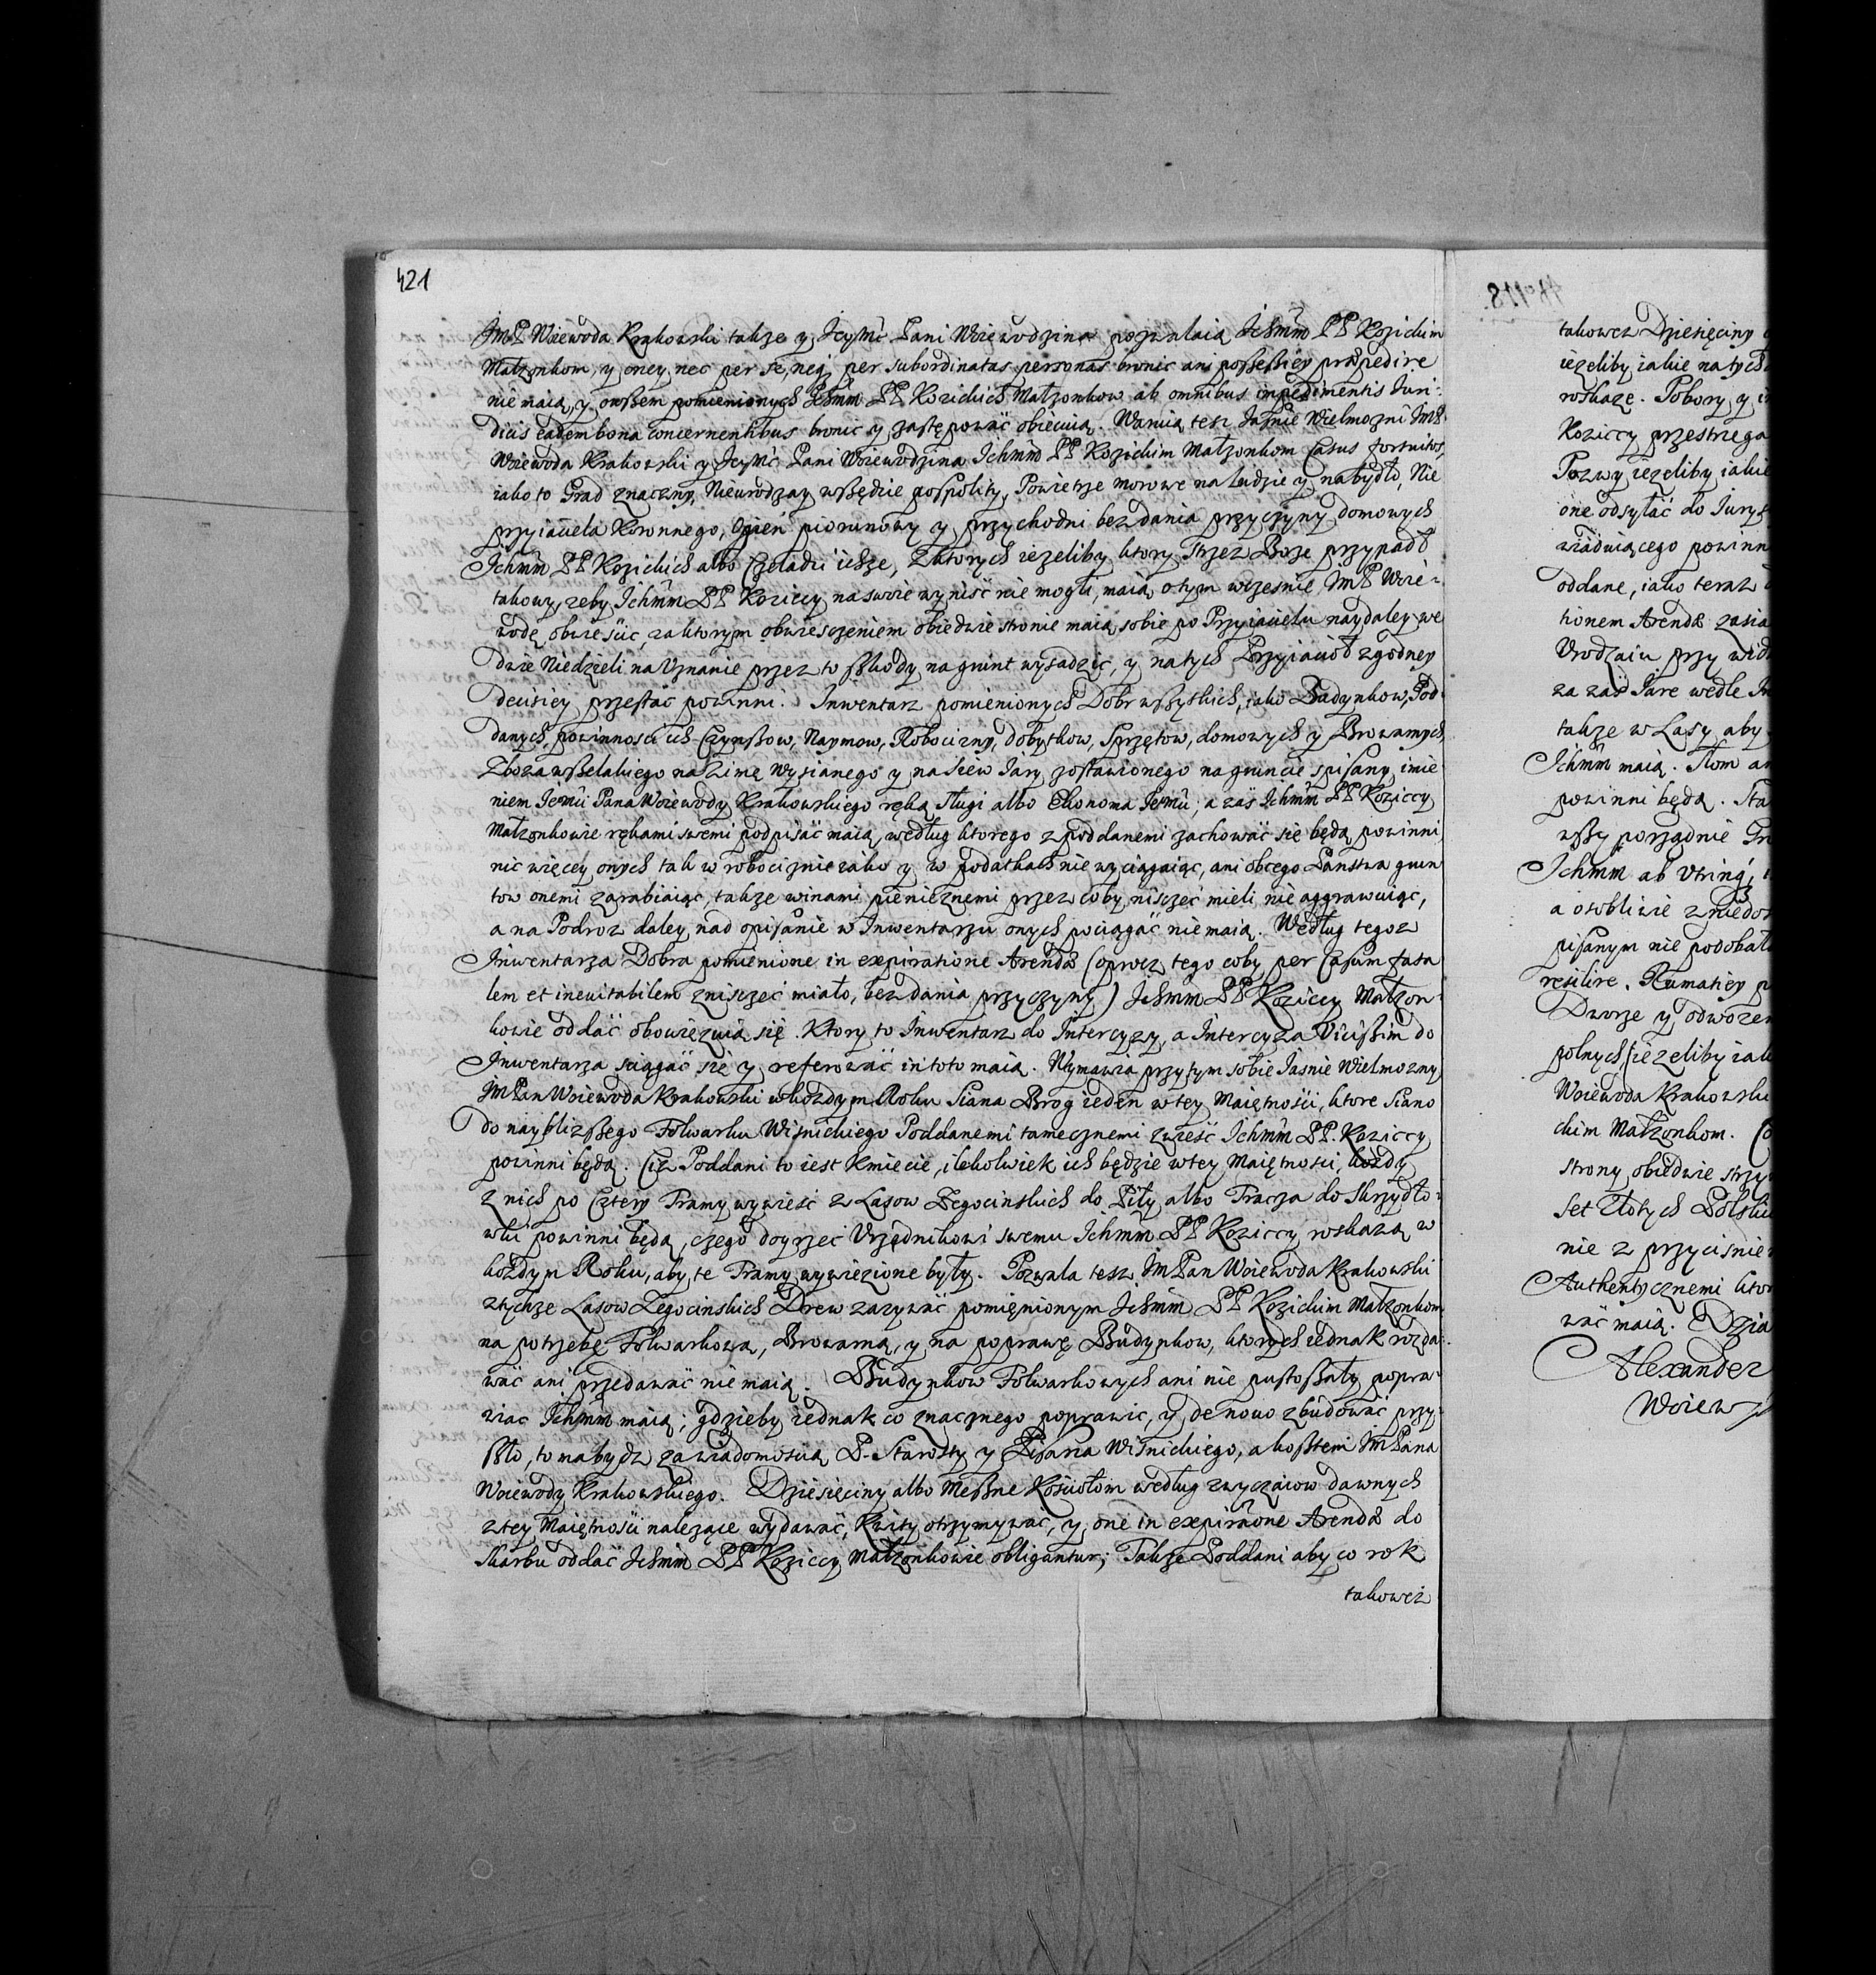 421
JmP Woiewoda Krakowski takze y Jeymć Pani Woiewodzina pozwalaią Jchmm PP Kozickim
Małzonkom, y oney nec per se, neq; per subordinatas personas bronic ani possessiey præpedire
nie maią, y owßem pomienionych Jchmm PP Kozickich Małzonkow ab omnibus impedimentis Juri-
dicis eadem bona concernentibus bronic y zastępowáć obiecuią. Waruią tesz Jaśnie Wielmozni JmP
Woiewoda Krakowski y Jeymć Pani Woiewodzina Jchmm PP Kozickim Małzonkom Casus fortuitos,
iako to Grad znaczny, Nieurodzay wßędzie pospolity, Powietrze morowe na ludzie y na bydło, Nie
przyiaciela Koronnego, Ogień piorunowy y przychodni bez dania przyczyny domowych
Jchmm PP Kozickich albo Czeladzi ichze, z ktorych iezeliby ktory strzez Boze przypadł
takowy, zeby Jchmm PP Koziccy na swoie wyniść nie mogli, maią o tym wczesnie JmP Woie-
wodę obwiescić, za ktorym obwiesczeniem obiedwie stronie maią sobie po Przyiacielu naydaley we
dwie Niedzieli na Uznanie przez to szkody na grunt wysadzic, y na tych Przyiacioł zgodney
decisiey przestac powinni. Inwentarz pomienionych Dobr wßytkich, iako Budynkow, Pod-
danych, powinnosci ich Czynßow, Naymow, Robocizny, dobytkow, Sprzętow, domowych y Browarnych,
Zboza wßelakiego na Zimę wysianego y na siew Jary zostawionego na gruncie spisany imie
niem Jemci Pana Woiewody Krakowskiego ręką Sługi albo Ekonoma Jemci; a zaś Jchmm PP Koziccy
Małzonkowie rękami swemi podpisáć maią, według ktorego z poddanemi zachowáć się będą powinni,
nic więcey onych tak w robociznie iako y w podatkach nie wyciągaiąc, ani obcego Panstwa grun
tow onemi zarabiaiąc, takze winami pienieznemi przez coby niszczeć mieli nie aggrawuiąc,
a na Podroz daley nad opisanie w Inwentarzu onych pociągáć nie maią. Według tegoz
Inwentarza Dobra pomienione in expiratione Arendæ (oprocz tego coby per Casum fata
lem et ineuitabilem zniszczeć miało, bez dania przyczyny) Jchmm PP Koziccy Małzon-
kowie oddáć obowięzuią się. Ktory to Inwentarz do Intercyzy, a Intercyza Vicißim do
Inwentarza sciągáć się y referowáć in toto maią. Wymawia przytym sobie Jaśnie Wielmozny
JmPan Woiewoda Krakowski w kozdym Roku Siana Brog ieden w tey Maiętności, ktore Siano
do naybliżßego Folwarku Wiśnickiego Poddanemi tamecznemi zwieść Jchmm PP. Koziccy
powinni będą. Ciz Poddani to iest Kmiecie, ilekolwiek ich będzie w tey Maiętnosci, kozdy
z nich po Cztery Tramy wywieść z Lasow Zegocinskich do Piły albo Tracza do Skrzydlo-
wki powinni będą, czego doyrzec Urzędnikowi swemu Jchmm PP Koziccy roskazą w
kozdym Roku, aby te Tramy wywiezione były. Pozwala tesz JmPan Woiewoda Krakowski
z tychze Lasow Zegocinskich Drew zazywáć pomięnionym Jchmm PP Kozickim Małzonkom
na potrzebę Folwarkową, Browarną, y na poprawę Budynkow, ktorych iednak rozda-
wáć ani przedawáć nie maią. Budynkow Folwarkowych ani nie pustoßały popra-
wiac Jchmm maią; gdzieby iednak co znacznego poprawic, y de nouo zbudowáć przy-
ßło, to ma bydz za wiadomoscią P. Starosty y Pisarza Wiśnickiego, a koßtem JmPana
Woiewody Krakowskiego. Dziesięciny albo Meßne Kościołom według zwyczaiow dawnych
z tey Maiętnośći nalezące wydawáć, Kwity otrzymywáć, y one in expiraone Arendæ do
Skarbu oddáć Jchmm PP Koziccy Małzonkowie obligantur; Takze Poddani aby co rok
takowez
takowez Dziesięciny
iezeliby iakie na tych
roskazę. Pobory y
Koziccy przestrzega
Pozwy iezeliby iakie
one odsyłáć do Jurys
wiadaiącego powinn
oddane, iako teraz
tionem Arendæ zasia
Urodzaiu przy wid
za zaś Jare wedle In
takze w Lasy aby
Jchmm maią. Tłom
powinni będą. Sta
wßy porządnie Gr
Jchmm ab utrinq;
a osobliwie z niedo
pisanym nie podobał
resilire. Rumatiey p
Dworze y odwozen
polnych (iezeliby iak
Woiewoda Krakowski
ckim Małzonkom. Co
strony obiedwie strzy
set Złotych Polskich
nie z przycisnie
Authentycznemi ktor
wáć maią. Dzia
Alexander
Woiew